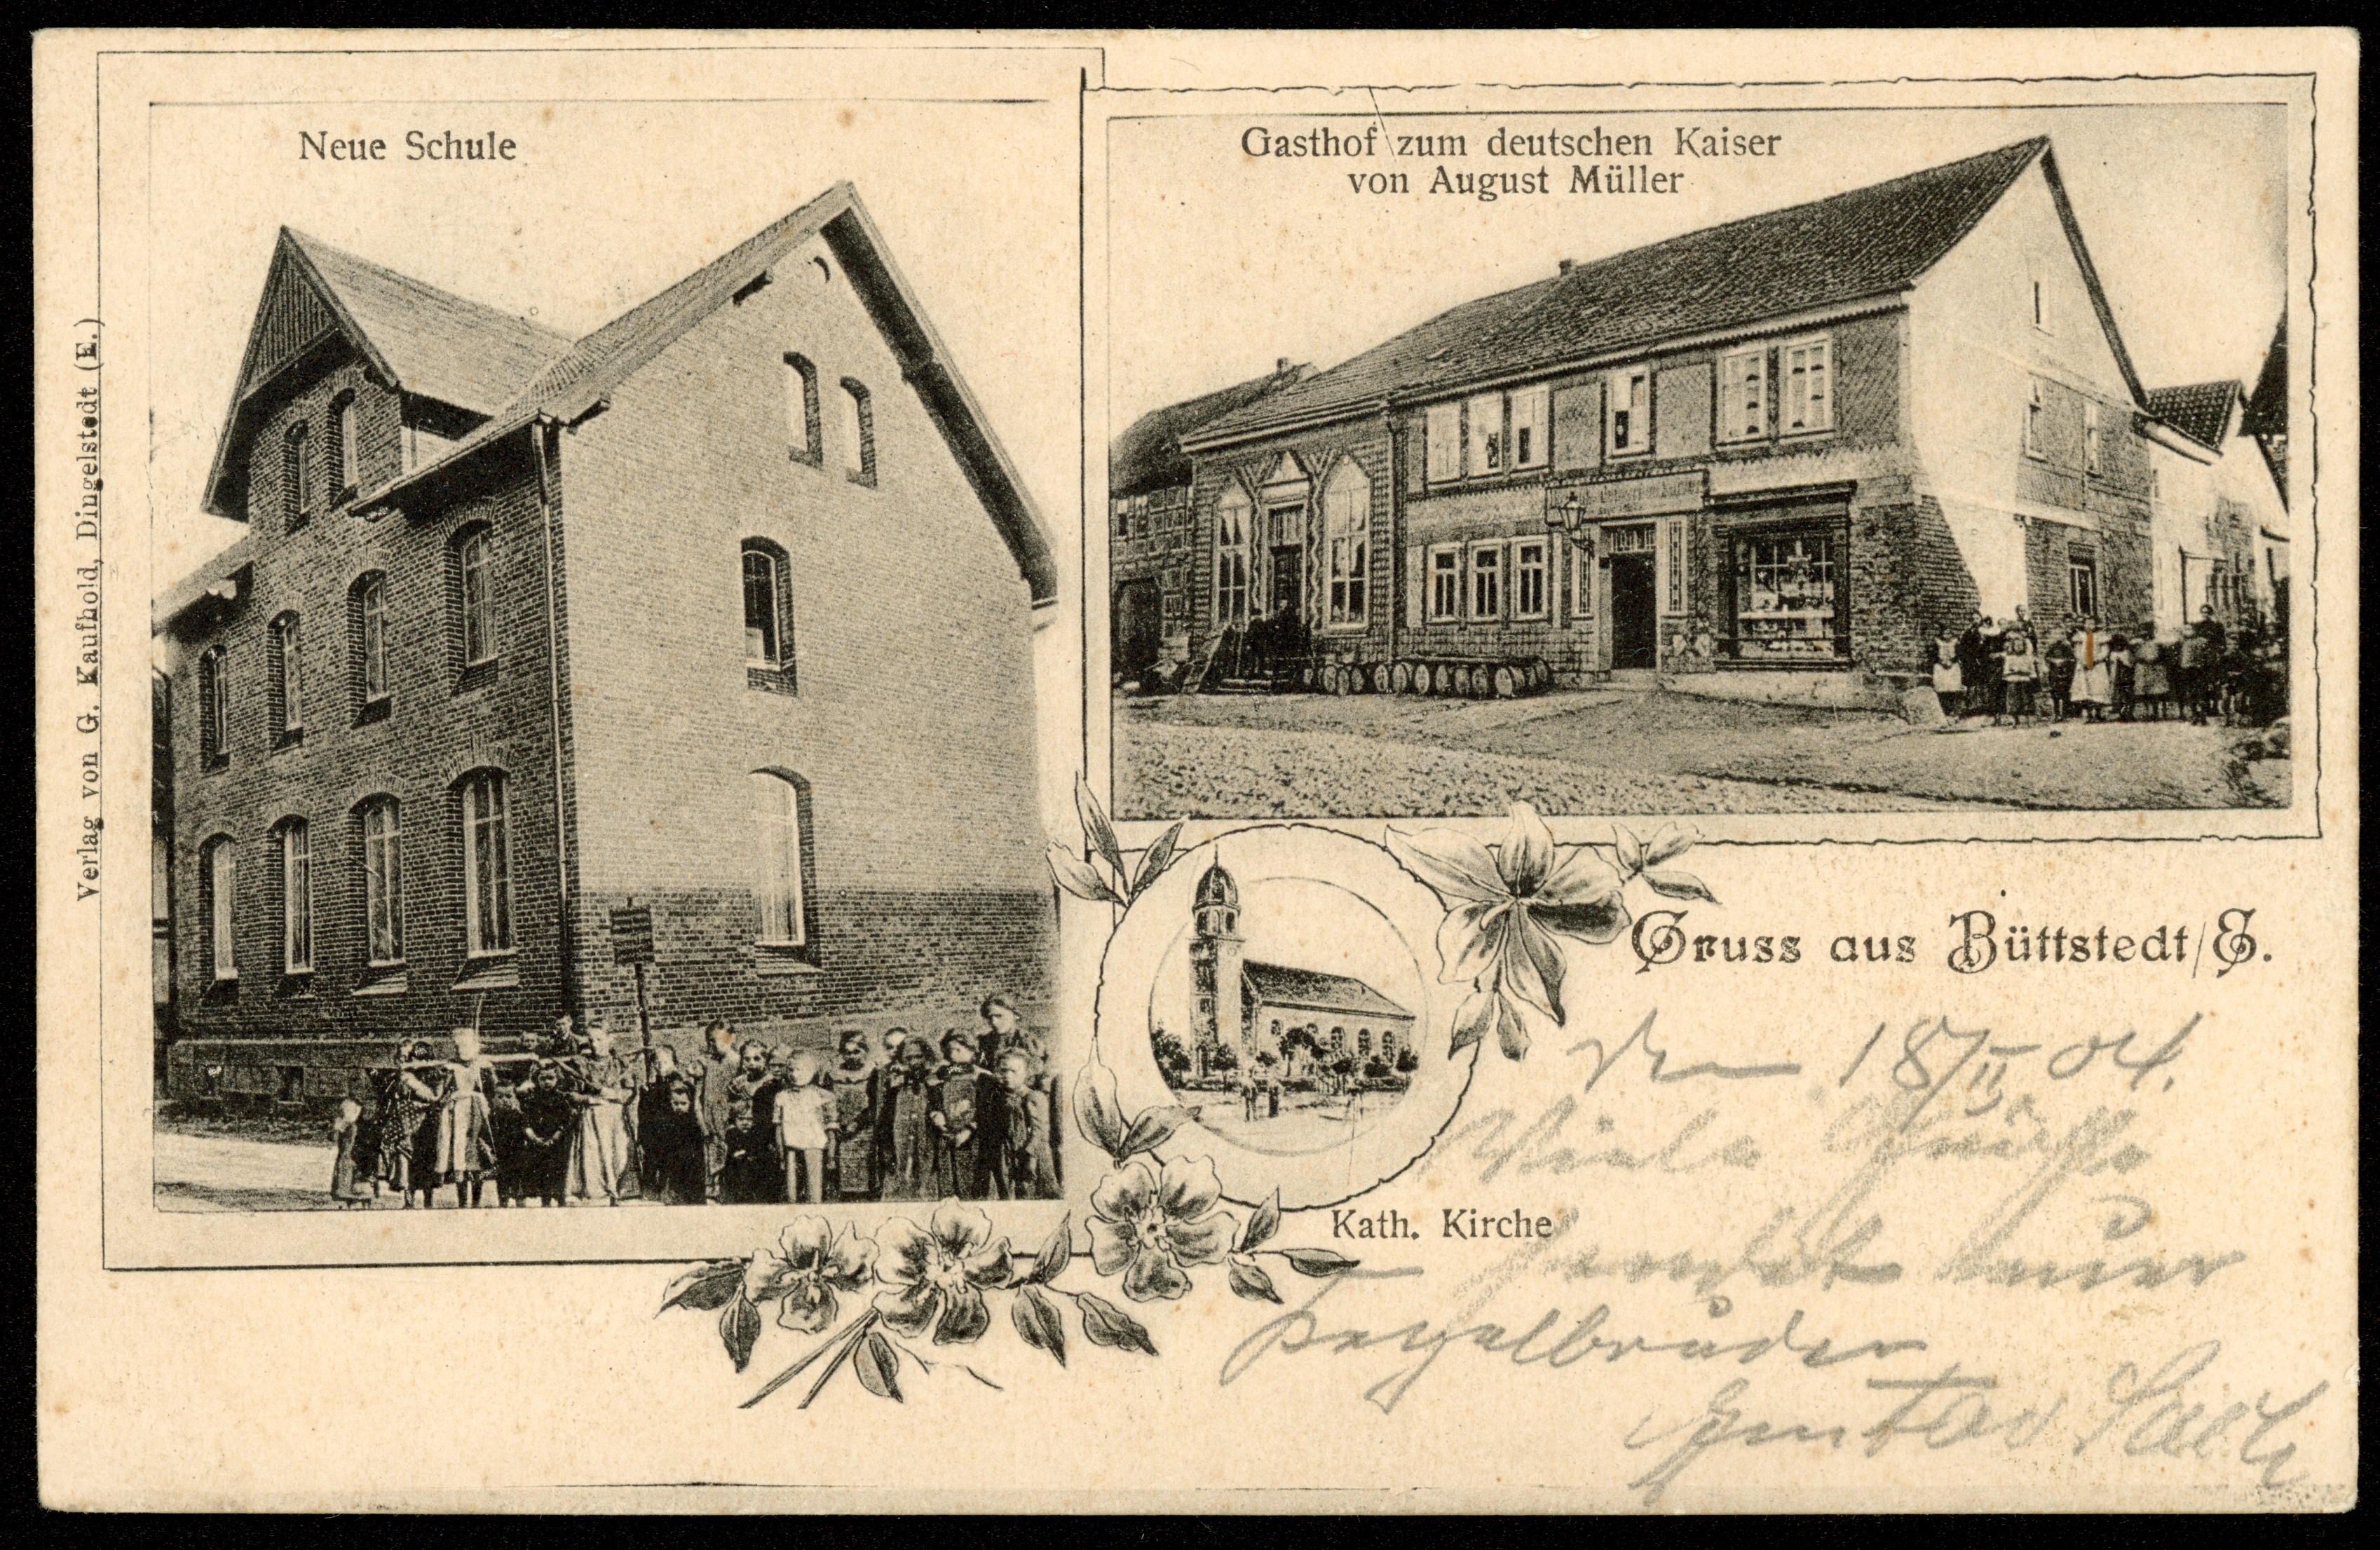 Neue Schule
Gasthof zum deutschen Kaiser
von August Müller
Verlag von G. Kaufhold, Dingelstedt (E.)
Gruss aus Büttstedt/E.
Kath. Kirche
den 18/II 04.
Viele Grüße
sendet euer
Kegelbruder
Gustav